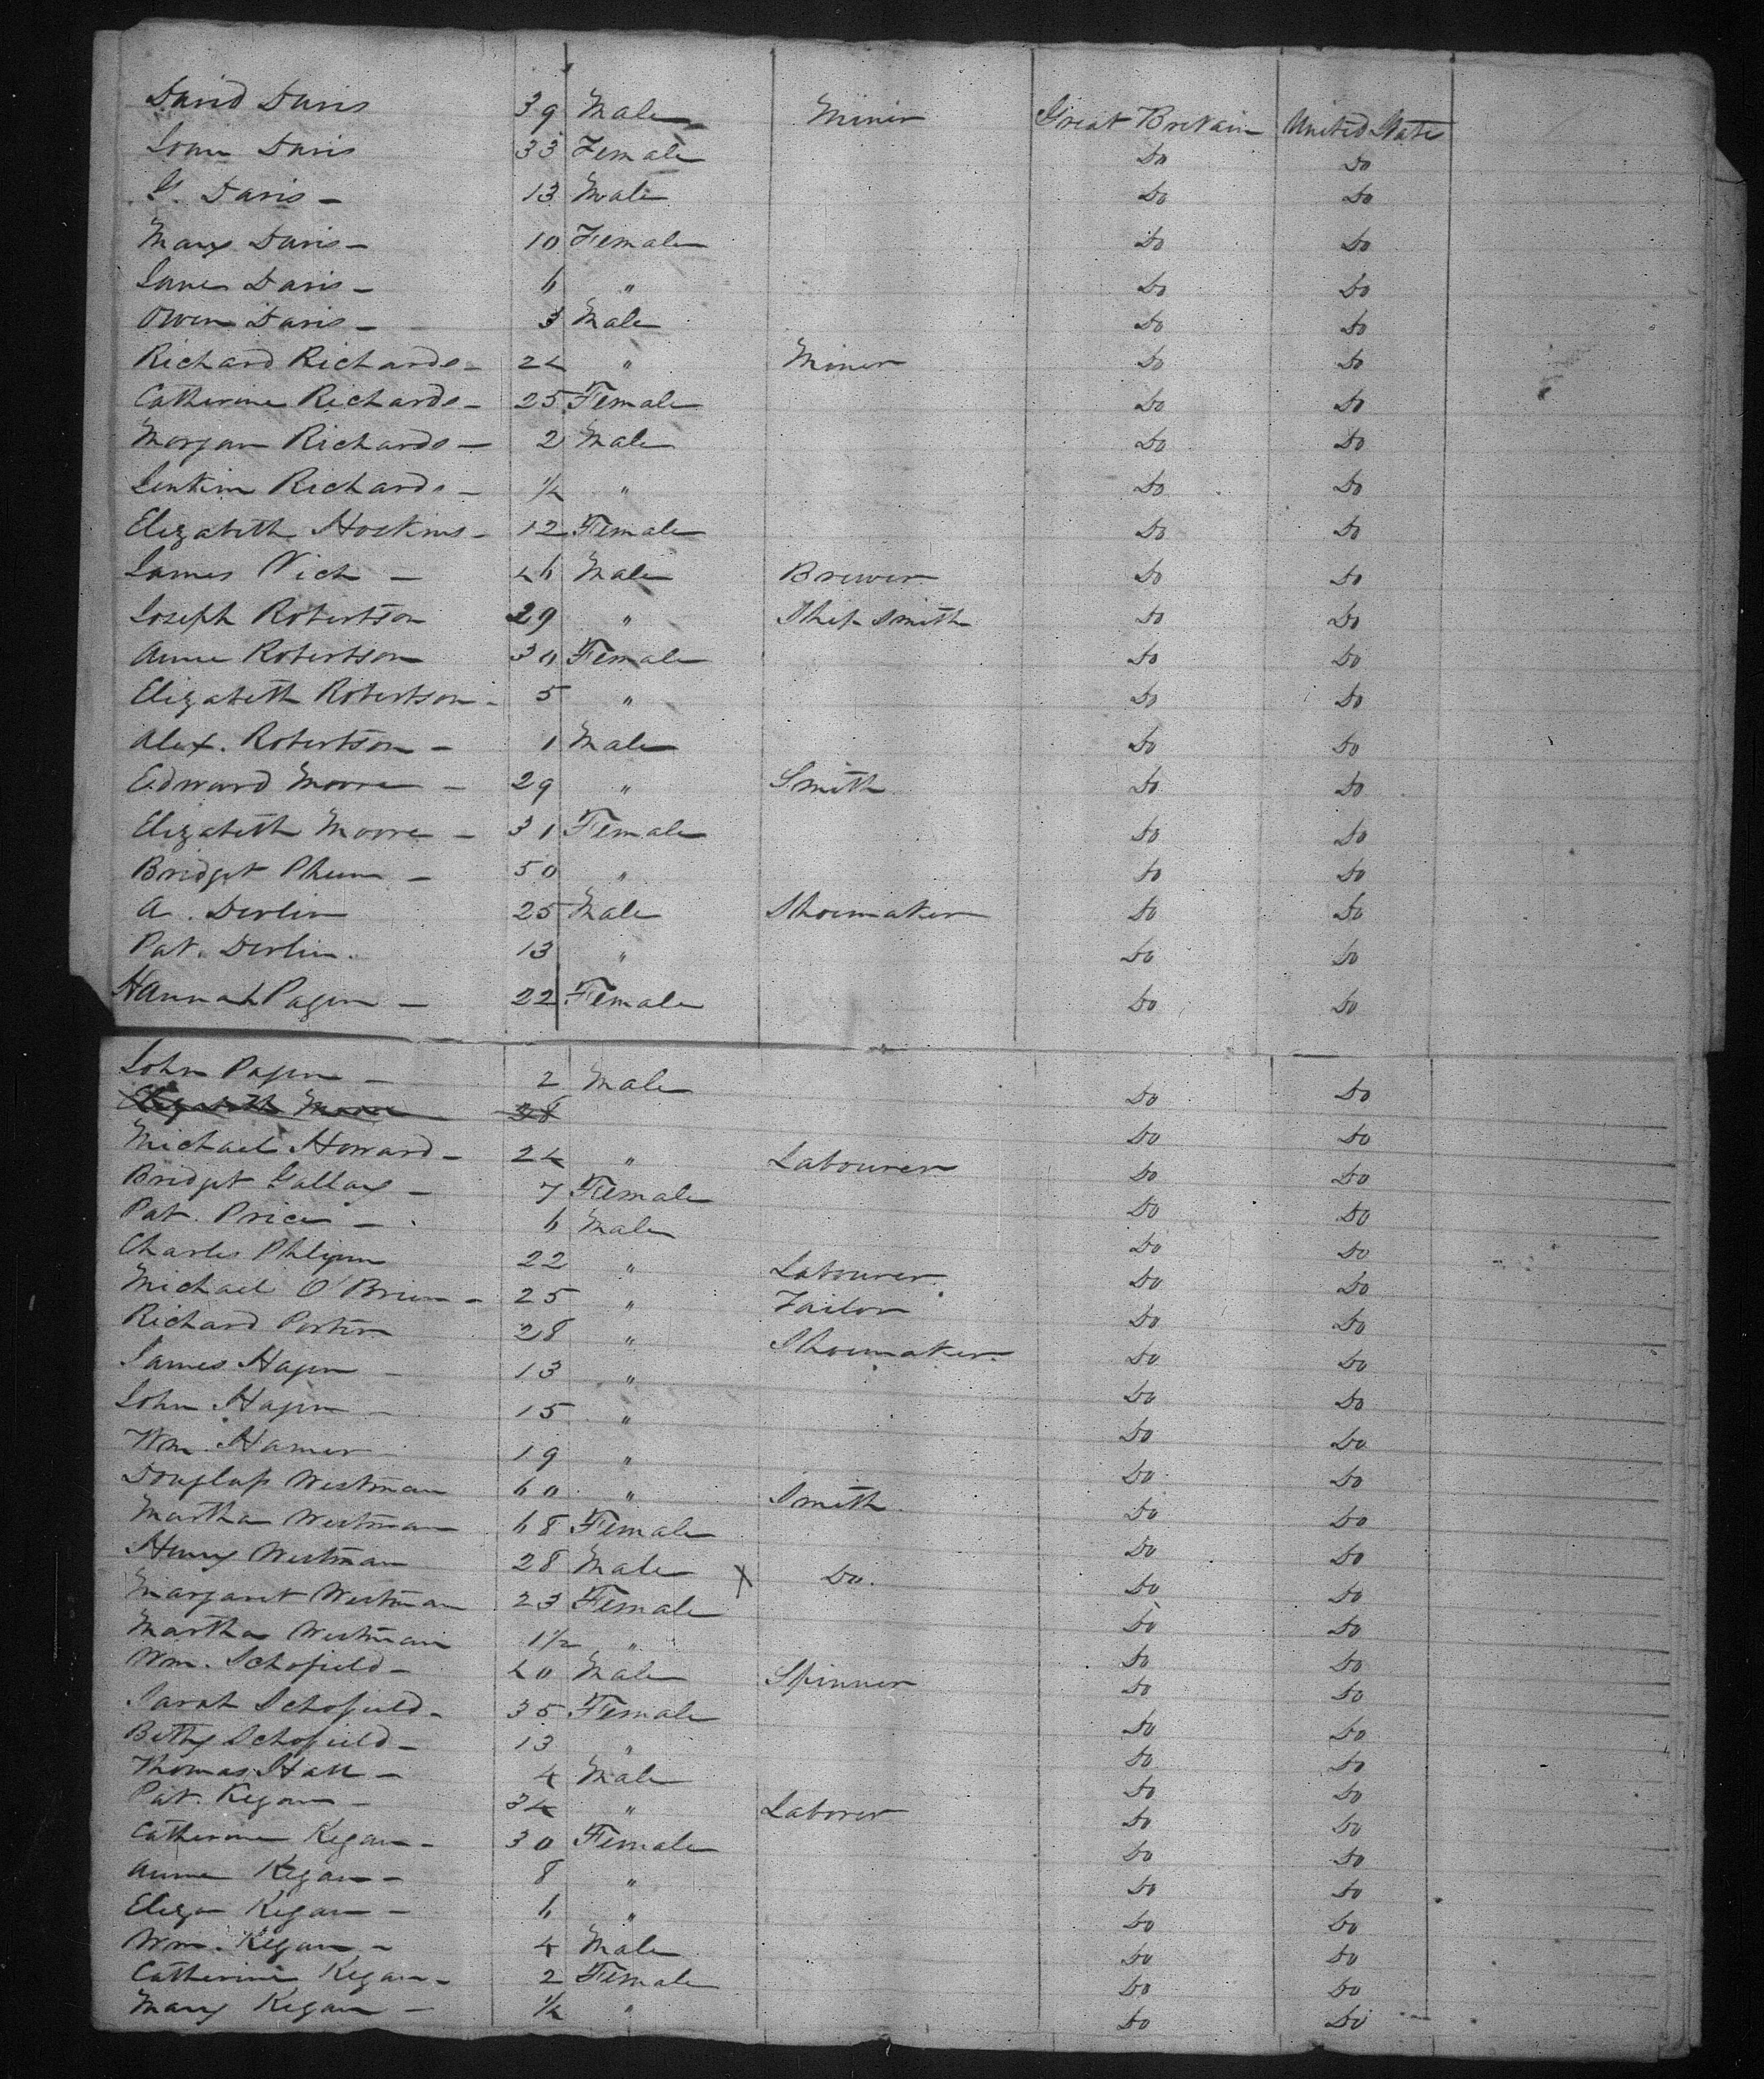 David Davis 39 Male Miner Great Britain United States
Davis 33 Female Do Do
G. Davis - 13 Male Do Do
Mary Davis - 10 Female Do Do
Jane Davis - 6 " Do Do
Owen Davis - 3 Male Do Do
Richard Richards - 24 " Miner Do Do
Catherine Richards - 25 Female Do Do
Morgan Richards - 2 Male Do Do
Jenkin Richards - " Do Do
Elizabeth Hoskins - 12 Female Do Do
James Vich - 46 Male Brewer Do Do
Joseph Robertson 29 " Ship Smith Do Do
Anne Robertson 30 Female Do Do
Elizabeth Robertson - 5 " Do Do
Alex. Robertson - 1 Male Do Do
Edward Moore - 29 " Smith Do Do
Elizabeth Moore - 31 Female Do Do
Bridget - 50 " Do Do
A. Devlin 25 Male Shoemaker Do Do
Pat. Devlin. 13 " Do Do
Hannah Pagen - 22 Female Do Do
John Pagen - 2 Male Do Do
Elizabeth Moore 38 Do Do
Michael Howard - 24 " Labourer Do Do
Bridget Gallay - 7 Female Do Do
Pat. Price - 6 Male Do Do
Charles 22 " Labourer Do Do
Michael O'Brien - 25 " Tailor Do Do
Richard Porter 28 " Shoemaker Do Do
James Hagen - 13 " Do Do
John Hagen - 15 " Do Do
Wm. Hamer 19 " Do Do
Douglass Westman 60 " Smith Do Do
Martha Westman 68 Female Do Do
Henry Westman 28 Male X Do. Do Do
Margaret Westman 23 Female Do Do
Martha Westman 1½ " Do Do
Wm. Schofield - 40 Male Spinner Do Do
Sarah Schofield - 35 Female Do Do
Betty Schofield - 13 " Do Do
Thomas Hall - 4 Male Do Do
Pat. Kegan - 34 " Laborer Do Do
Catherine Kegan - 30 Female Do Do
Anne Kegan - 8 " Do Do
Eliza Kegan - 6 " Do Do
Wm. Kegan - 4 Male Do Do
Catherine Kegan - 2 Female Do Do
Mary Kegan - " Do Do